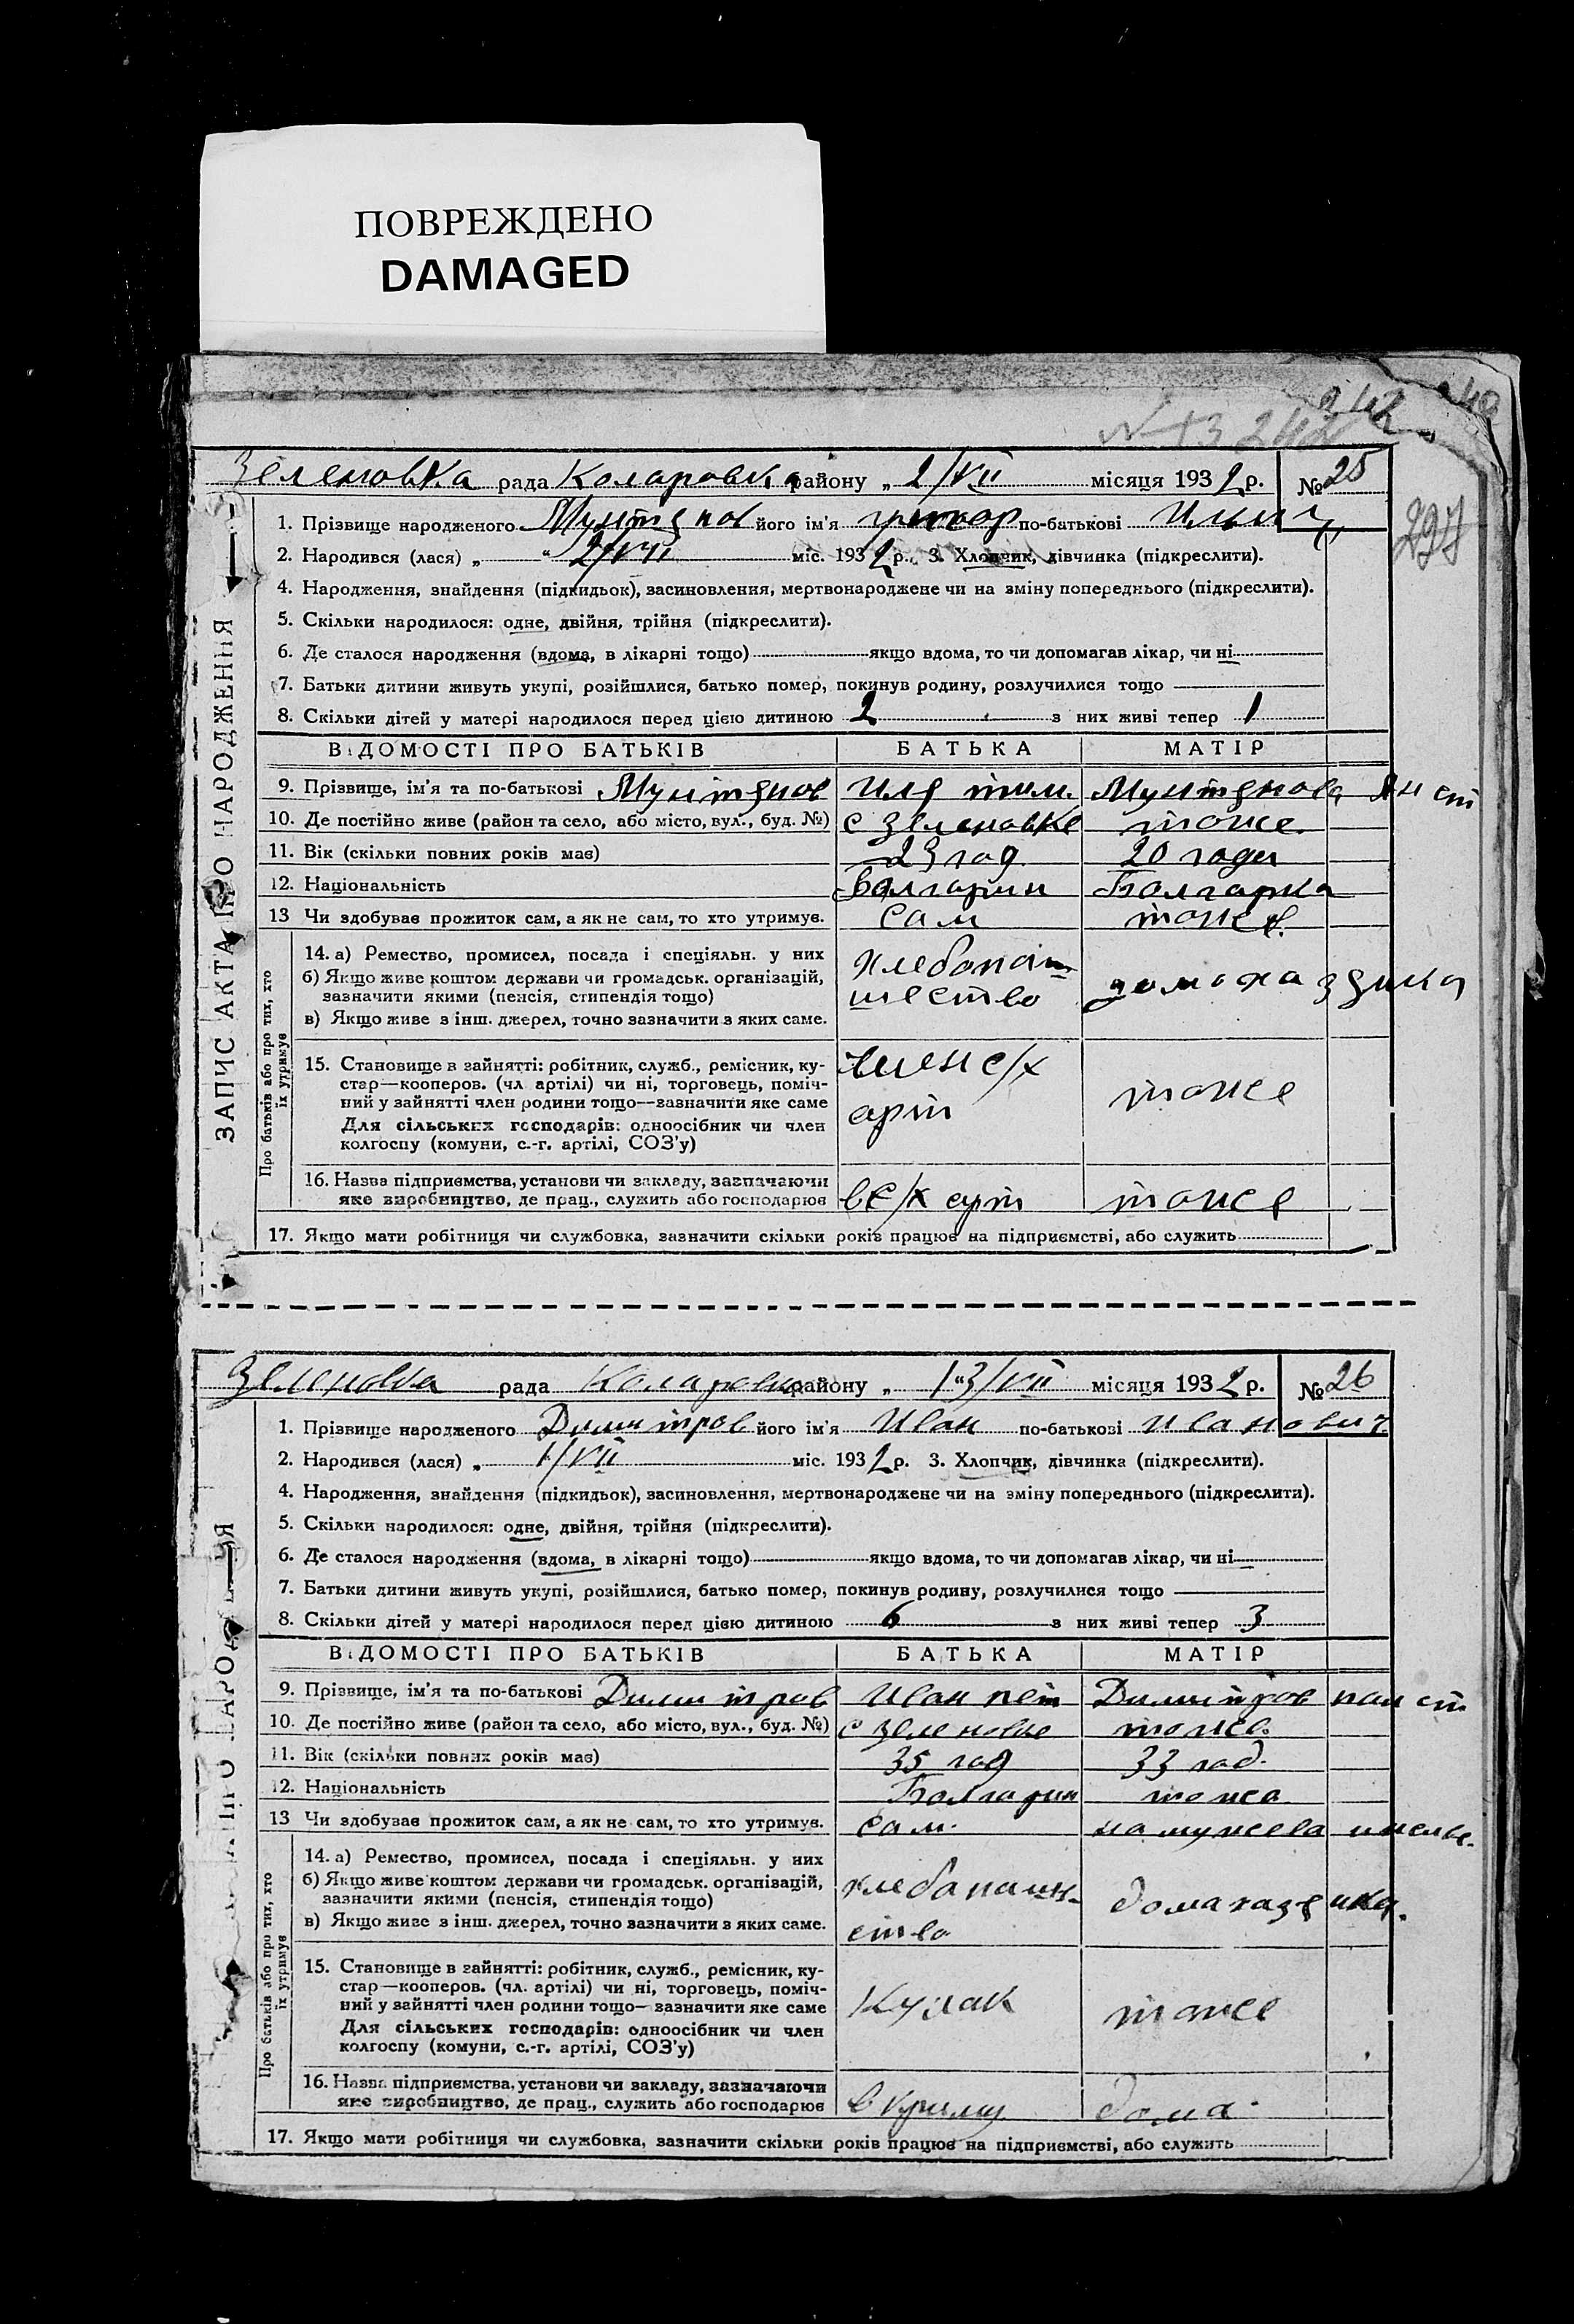 ПОВРЕЖДЕНО
DAMAGED
242
N 13 242
297
Зеленовка рада Коларовка району „ 2/VII місяця 1932 р. № 25
ЗАПИС АКТА ПРО НАРОДЖЕННЯ
1. Прізвище народженого Мунтянов його ім'я григор по-батькові Ильич
2. Народився (лася) „ " 2/VII міс. 1932 р. 3. Хлопчик, дівчинка (підкреслити).
4. Народження, знайдення (підкидьок), засиновлення, мертвонароджене чи на зміну попереднього (підкреслити).
5. Скільки народилося: одне, двійня, трійня (підкреслити).
6. Де сталося народження (вдома, в лікарні тощо) якщо вдома, то чи допомагав лікар, чи ні
7. Батьки дитини живуть укупі, розійшлися, батько помер, покинув родину, розлучилися тощо
8. Скільки дітей у матері народилося перед цією дитиною 2 з них живі тепер 1
ВІДОМОСТІ ПРО БАТЬКІВ БАТЬКА МАТІР
9. Прізвище, ім'я та по-батькові Мунтянов Иля тим. Мунтянова Ян ст
10. Де постійно живе (район та село, або місто, вул., буд. №) с Зеленовке тоже.
11. Вік (скільки повних років має) 23 год. 20 годы
12. Національність Болгарин Болгарка
13 Чи здобував прожиток сам, а як не сам, то хто утримує. сам тоже.
Про батьків або про тих, хто їх утримує
14. а) Ремество, промисел, посада і спеціяльн. у них
б) Якщо живе коштом держави чи громадськ. організацій,
зазначити якими (пенсія, стипендія тощо)
в) Якщо живе з інш. джерел, точно зазначити з яких саме.
хлебопаш
шество домохазяика
15. Становище в зайнятті: робітник, служб., ремісник, ку-
стар—кооперов. (чл. артілі) чи ні, торговець, поміч-
ний у зайнятті член родини тощо—зазначити яке саме
Для сільських господарів: одноосібник чи член
колгоспу (комуни, с.-г. артілі, СОЗ'у)
член с/х
арт тоже
16. Назва підприємства, установи чи закладу, зазначаючи
яке виробництво, де прац., служить або господарює
в с/х арт тоже
17. Якщо мати робітниця чи службовка, зазначити скільки років працює на підприємстві, або служить
Зеленовка рада Коларовка району „ 13/VII місяця 1932 р. № 26
1. Прізвище народженого Димитров його ім'я Иван по-батькові Иванович
2. Народився (лася) „ 1/VII міс. 1932 р. 3. Хлопчик, дівчинка (підкреслити).
4. Народження, знайдення (підкидьок), засиновлення, мертвонароджене чи на зміну попереднього (підкреслити).
5. Скільки народилося: одне, двійня, трійня (підкреслити).
6. Де сталося народження (вдома, в лікарні тощо) якщо вдома, то чи допомагав лікар, чи ні
7. Батьки дитини живуть укупі, розійшлися, батько помер, покинув родину, розлучилися тощо
8. Скільки дітей у матері народилося перед цією дитиною 6 з них живі тепер 3
ВІДОМОСТІ ПРО БАТЬКІВ БАТЬКА МАТІР
9. Прізвище, ім'я та по-батькові Димитров Иван пет Димитров пал ст
10. Де постійно живе (район та село, або місто, вул., буд. №) с Зеленовке тоже.
11. Вік (скільки повних років має) 35 год 33 год.
12. Національність Болгарин тоже
13 Чи здобував прожиток сам, а як не сам, то хто утримує. сам. на мужева
Про батьків або про тих, хто їх утримує
14. а) Ремество, промисел, посада і спеціяльн. у них
б) Якщо живе коштом держави чи громадськ. організацій,
зазначити якими (пенсія, стипендія тощо)
в) Якщо живе з інш. джерел, точно зазначити з яких саме.
хлебапаше-
ство домахазяика.
15. Становище в зайнятті: робітник, служб., ремісник, ку-
стар—кооперов. (чл. артілі) чи ні, торговець, поміч-
ний у зайнятті член родини тощо—зазначити яке саме
Для сільських господарів: одноосібник чи член
колгоспу (комуни, с.-г. артілі, СОЗ'у)
Кулак тоже
16. Назва підприємства, установи чи закладу, зазначаючи
яке виробництво, де прац., служить або господарює
в Криму дома.
17. Якщо мати робітниця чи службовка, зазначити скільки років працює на підприємстві, або служить